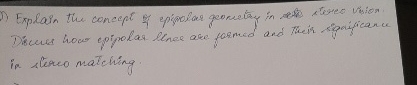 ) Explain the concept of epipolar geometry in stereo vision.
Discuss how epipolar lines are formed and their significance
in stereo matching.